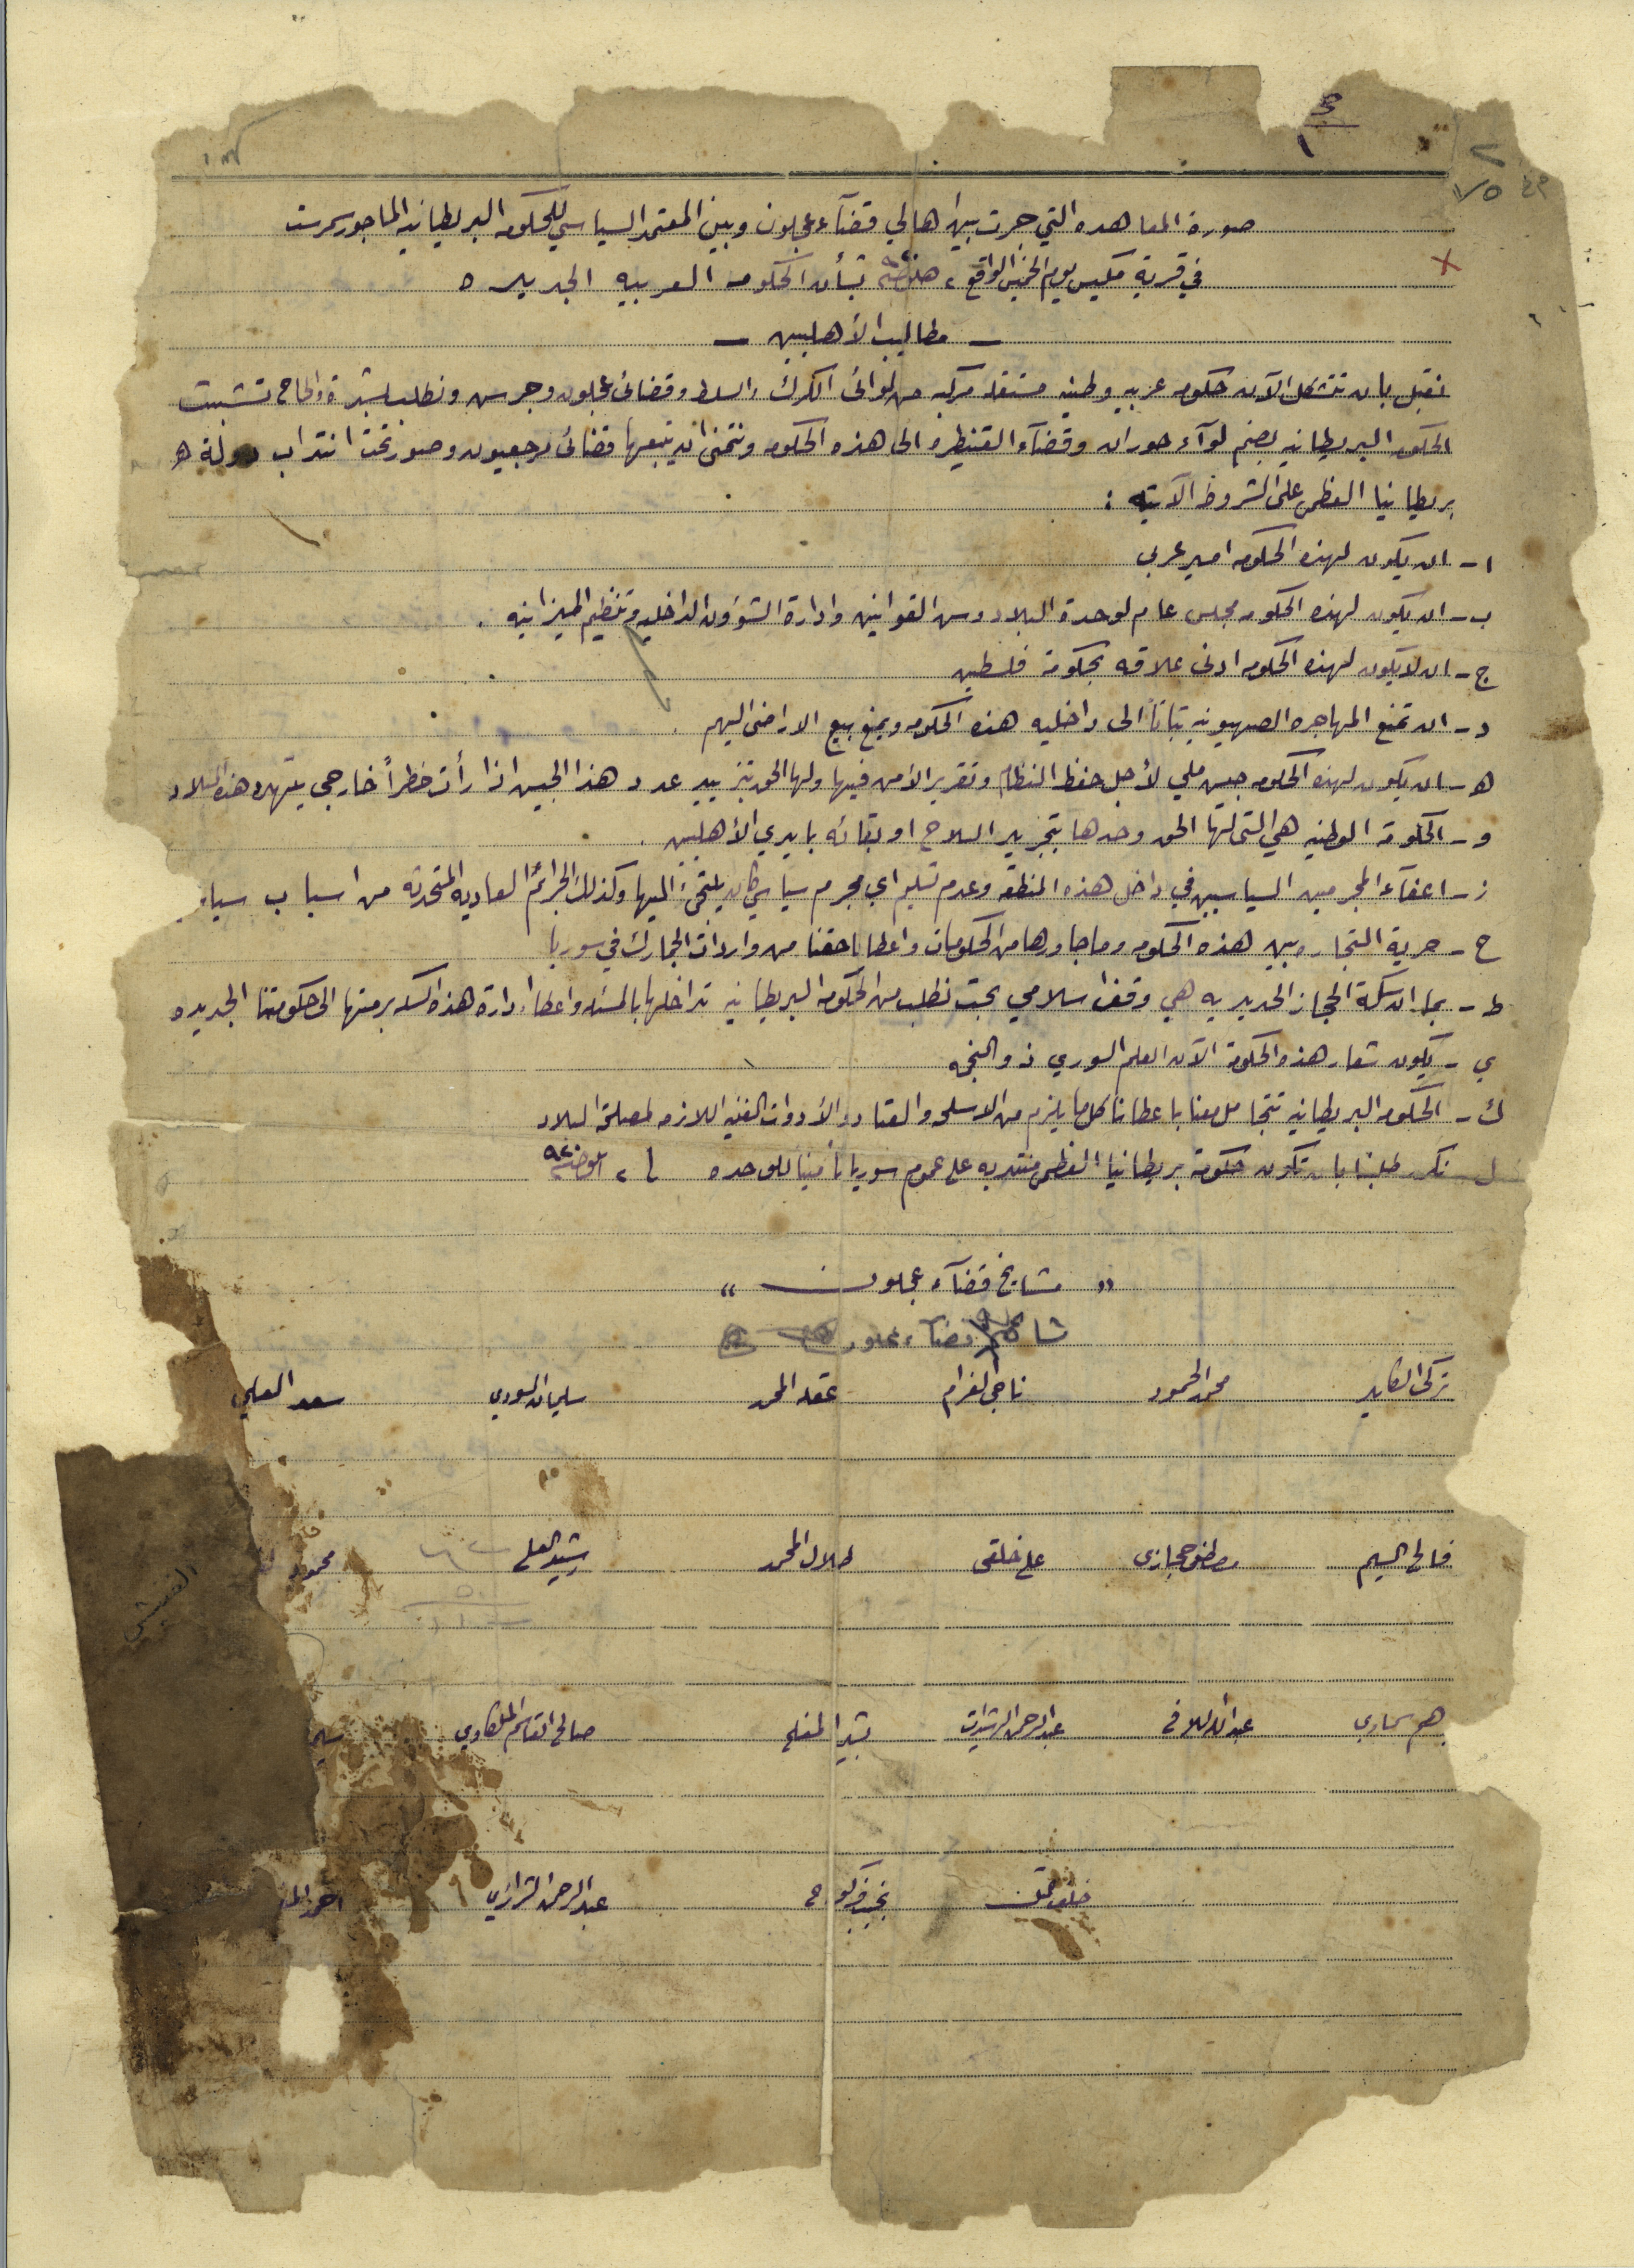 صورة المعاهده التي جرت بين اهالي قضآء عجلون وبين المعتمد السياسي للحكومه البريطانيه الماجور سمرست
في قرية مكيس يوم الخميس الواقع ٢ بشأن الحكومه العربيه الجديده
— مطاليب الأهليين —
نقبل بان تتشكل الآن حكومه عربيه وطنيه مستقله مركبه من لوائى الكرك والسلط وقضائى عجلون وجرس ونطلب بشدة والحاح تشبث
الحكومه البريطانيه بضم لوآء حوران وقضآء القنيطره الى هذه الحكومه ونتمنى ان يتبعها قضائى مرجعيون وصور تحت انتداب دولة
بريطانيا العظمى على الشروط الآتيه :
ا - ان يكون لهذه الحكومه امير عربي
ب - ان يكون لهذه الحكومه مجلس عام لوحدة البلاد وسن القوانين وادارة الشؤون الداخليه وتنظيم الميزانيه .
ج - ان لا يكون لهذه الحكومه ادنى علاقه بحكومة فلسطين
د - ان تمنع المهاجره الصهيونيه بتاتاً الى داخليه هذه الحكومه ويمنع بيع الاراضى اليهم .
ه - ان يكون لهذه الحكومه جيش ملي لأجل حفظ النظام وتقرير الأمن فيها ولها الحق بتزييد عدد هذا الجيش اذا رأت خطراً خارجي يتهدد هذه البلاد
و - الحكومة الوطنيه هي التى لها الحق وحدها بتجريد السلاح او بقائه بايدي الأهليين .
ز - اعفآء المجرمين السياسيين في داخل هذه المنطقه وعدم تسليم اي مجرم سياسي كان يلتجئ اليها وكذلك الجرائم العاديه المتحدثه من اسباب سيا
ح - حرية التجاره بين هذه الحكومه وما جاورها من الحكومات واعطانا حقنا من واردات الجمارك في سوريا
ط - بما ان سكة الحجاز الحديديه هي وقف اسلامي بحت نطلب من الحكومه البريطانيه تداخلها بالمسئله واعطاء ادارة هذه السكه برمتها الى حكومتنا الجديده
ي - يكون شعار هذه الحكومة الآن العلم السوري ذو النجمه
ك - الحكومه البريطانيه تتجامل معنا باعطانا كل ما يلزم من الاسلحه والعتاد والأدوات الفنيه اللازمه لمصلحة البلاد
ل نكرر طلبنا بان تكون حكومة بريطانيا العظمى منتدبه على عموم سوريا تأمينا للوحده ٢
" مشايخ قضآء عجلون "
قضآء عجلون
تركى الكايد محمد الحمود ناجى الغرام عقله المحمد سليمان السودي سعد العلي
فالح السيم مصطفى حجازى على خلقى طلال المحمد رشيد العلي محمود
هم سماوي عبد الرحمن الرشيدات بشير المفلح صالح القاسم الملكاوي
خلف نجيب عبد الرحمن الشرايري احمد